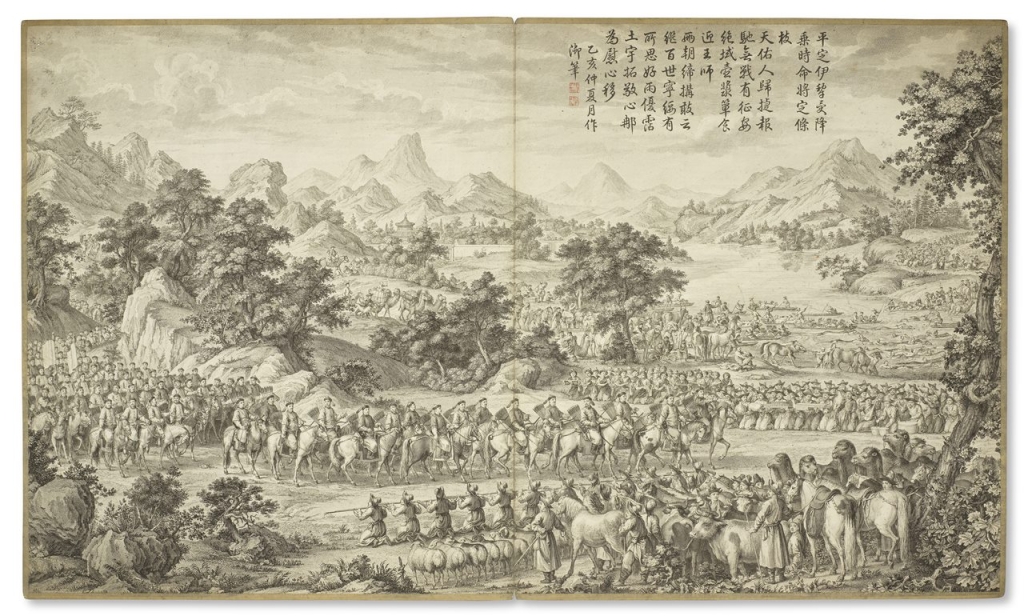 平定伊犂受降
乘時命將定條
枝
天佑人歸捷報
馳無戰有征安
絕域壺漿簞食
迎王師
兩朝締搆敢云
繼百世寧綏有
所思好雨優霑
土宇拓敬心那
為慰心移
乙亥仲夏月作
御筆